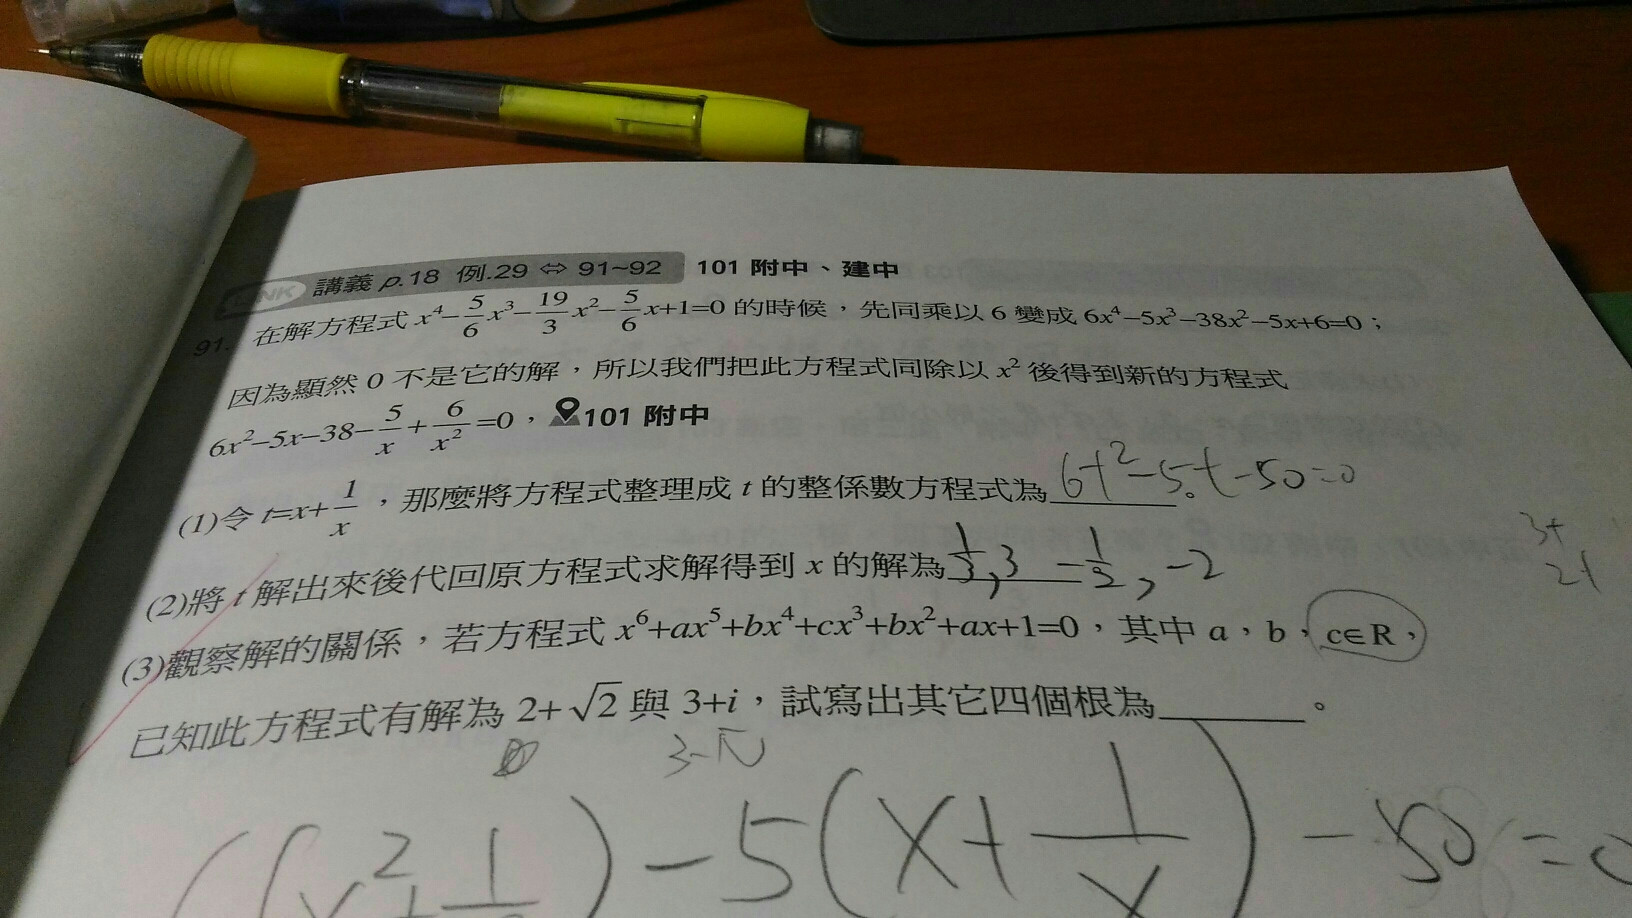 LINK 講義 p.18 例.29 ⇔ 91~92 101 附中、建中
91. 在解方程式 x⁴−5/6x³−19/3x²−5/6x+1=0 的時候，先同乘以 6 變成 6x⁴−5x³−38x²−5x+6=0；
因為顯然 0 不是它的解，所以我們把此方程式同除以 x² 後得到新的方程式
6x²−5x−38−5/x+6/x²=0，101 附中
(1)令 t=x+1/x，那麼將方程式整理成 t 的整係數方程式為 6t²−5t−50=0
3+
(2)將 t 解出來後代回原方程式求解得到 x 的解為 1/3,3 −1/2,−2
(3)觀察解的關係，若方程式 x⁶+ax⁵+bx⁴+cx³+bx²+ax+1=0，其中 a，b，c∈R，
已知此方程式有解為 2+√2 與 3+i，試寫出其它四個根為______。
−5(x+1/x)−50=0